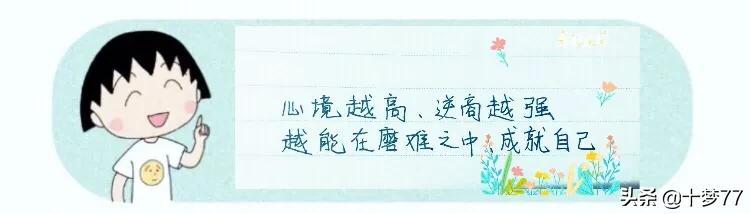 心境越高、逆商越强
越能在磨难之中、成就自己
头条 @十梦77